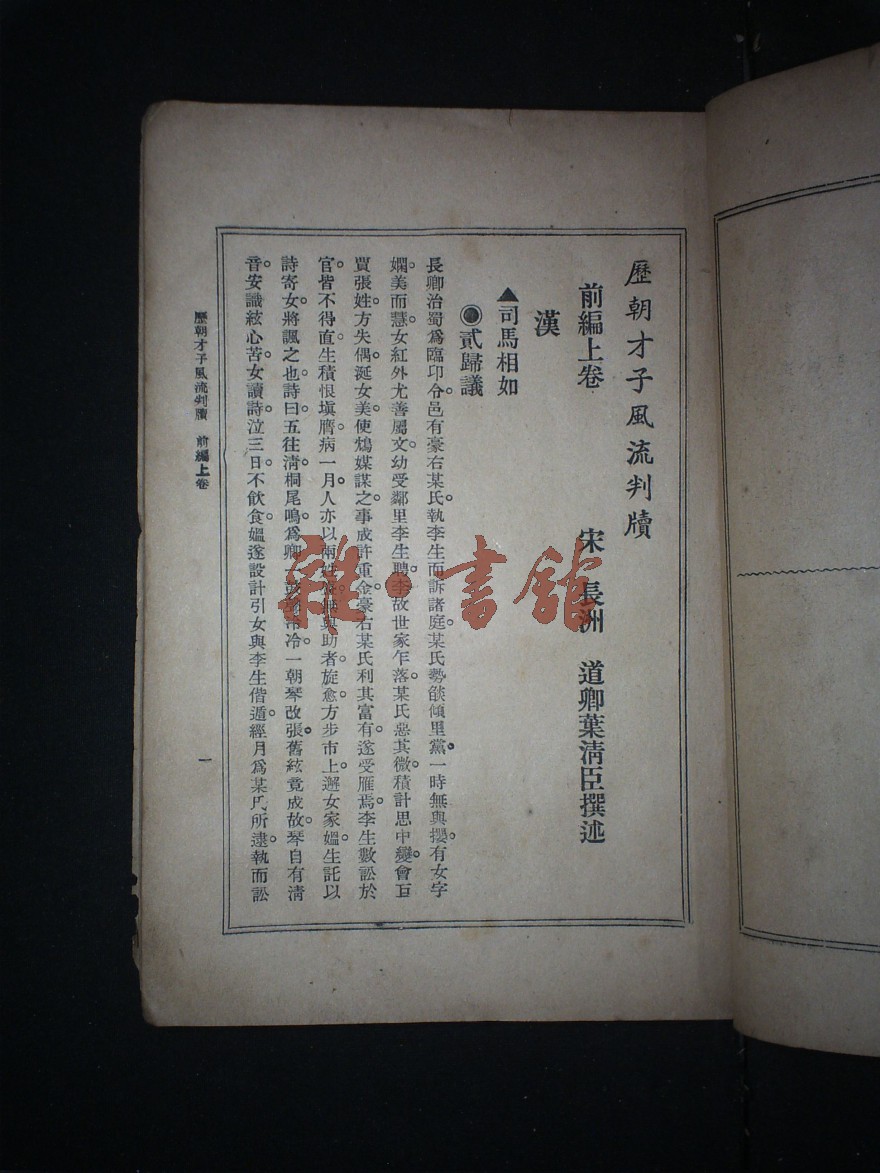 歷朝才子風流判牘
前編上卷　宋　長洲　道卿葉淸臣撰述
漢
▲司馬相如
◉貳歸議
長卿治蜀爲臨卭令。邑有豪右某氏。執李生而訴諸庭。某氏勢燄傾里黨。一時無與攖。有女字
嫻。美而慧。女紅外尤善屬文。幼受鄰里李生聘。李故世家乍落。某氏惡其微。積計思中變。會巨
賈張姓方失偶。涎女美。使鴆媒謀之。事成許重金。豪右某氏利其富有。遂受雁焉。李生數訟於
官。皆不得直。生積恨塡膺。病一月。人亦以兩姓與助者。旋愈。方步市上。邂女家媼。生託以
詩寄女。將諷之也。詩曰。五往淸桐尾鳴。爲卿一冷。一朝琴改張。舊絃竟成故。琴自有淸
音。安識絃心苦。女讀詩。泣三日。不飮食。媼遂設計引女與李生偕遁。經月爲某氏所逮。執而訟
歷朝才子風流判牘　前編上卷
一
雜·書館